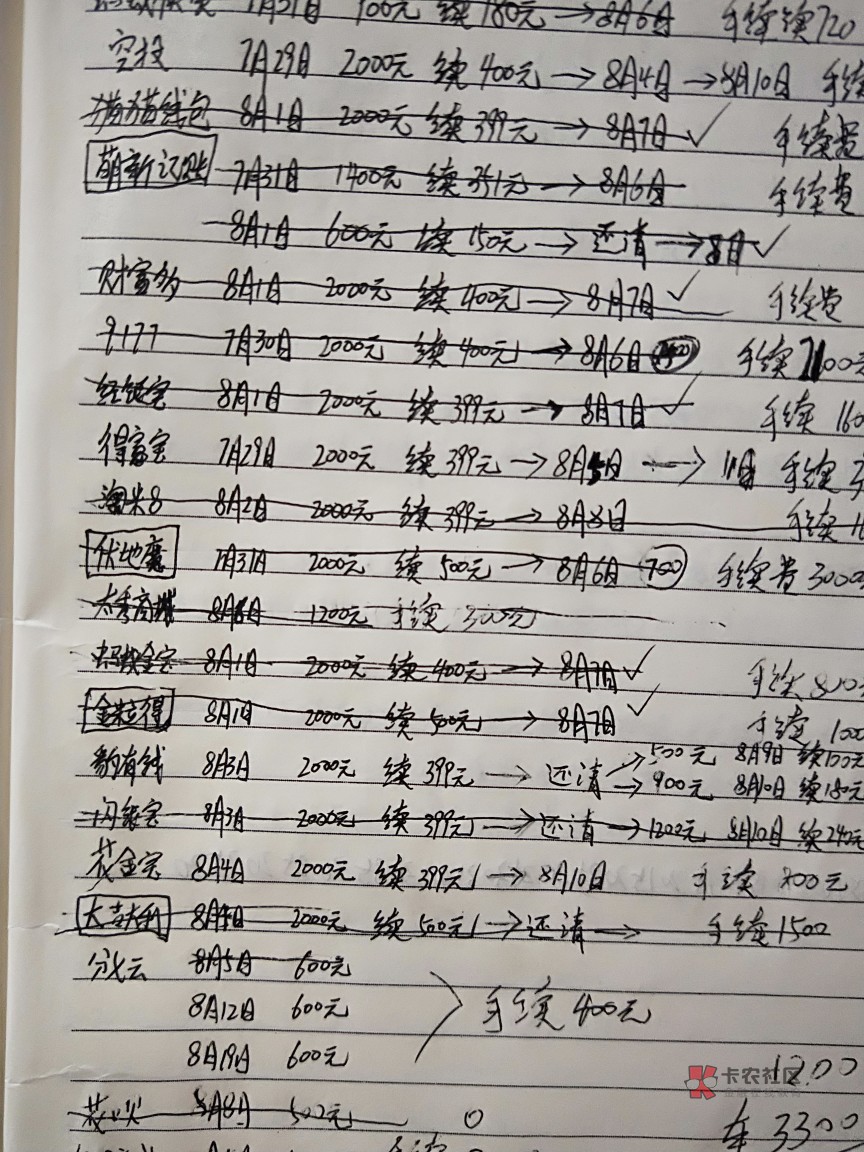 7月31日 100元 续180元→8月6日 手续续720
空投 7月29日 2000元 续400元→8月4日→8月10日 手续
猫猫钱包 8月1日 2000元 续399元→8月7日✓ 手续费
萌新记账 7月31日 1400元 续351元→8月6日 手续费
8月1日 600元 续150元→还清→8月✓
财富多 8月1日 2000元 续400元→8月7日✓ 手续费
9177 7月30日 2000元 续400元→8月6日 手续
8月1日 2000元 续399元→8月7日✓ 手续 160
得富宝 7月29日 2000元 续399元→8月5日→11日 手续
淘米8 8月2日 2000元 续399元→8月8日 手续
伏地魔 7月31日 2000元 续500元→8月6日 700 手续费3000
8月8日 1200元 手续300元
8月1日 2000元 续400元→8月7日✓ 手续800
金粒得 8月1日 2000元 续500元→8月7日✓ 手续 1000
豹有钱 8月3日 2000元 续399元→还清→500元 8月9日 续100元
→900元 8月10日 续180元
闪银宝 8月3日 2000元 续399元→还清→1200元 8月10日 续240元
花金宝 8月4日 2000元 续399元→8月10日 手续 800元
大吉大利 8月4日 2000元 续500元→还清→ 手续1500
分期云 8月5日 600元
8月12日 600元 手续400元
8月19日 600元
1200
卡农社区
金融在线教育
8月8日 500元 0
3300